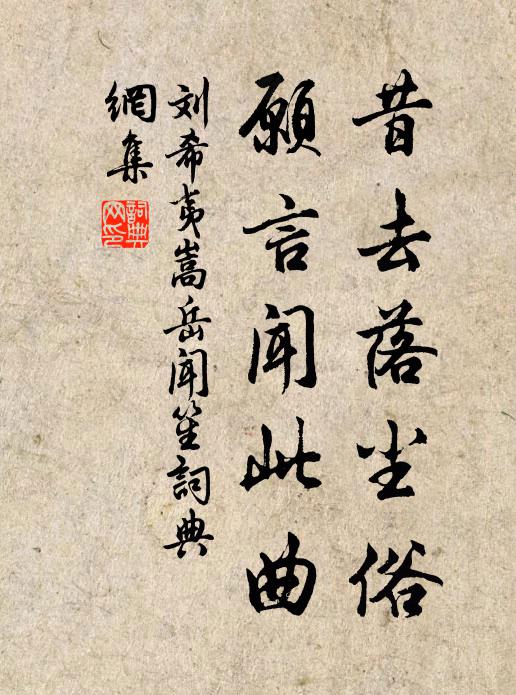 昔去落尘俗
願言闻此曲
刘希夷嵩岳闻笙詞典
網集
詞典
网印